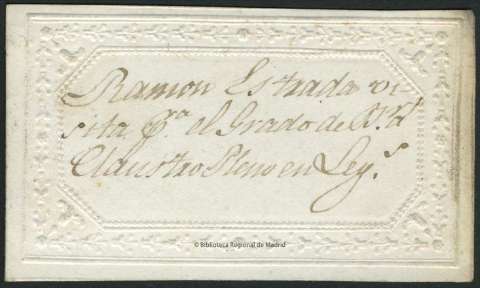 Ramon Estrada vi-
sita p.ª el Grado de
Claustro Pleno en Ley.s
© Biblioteca Regional de Madrid